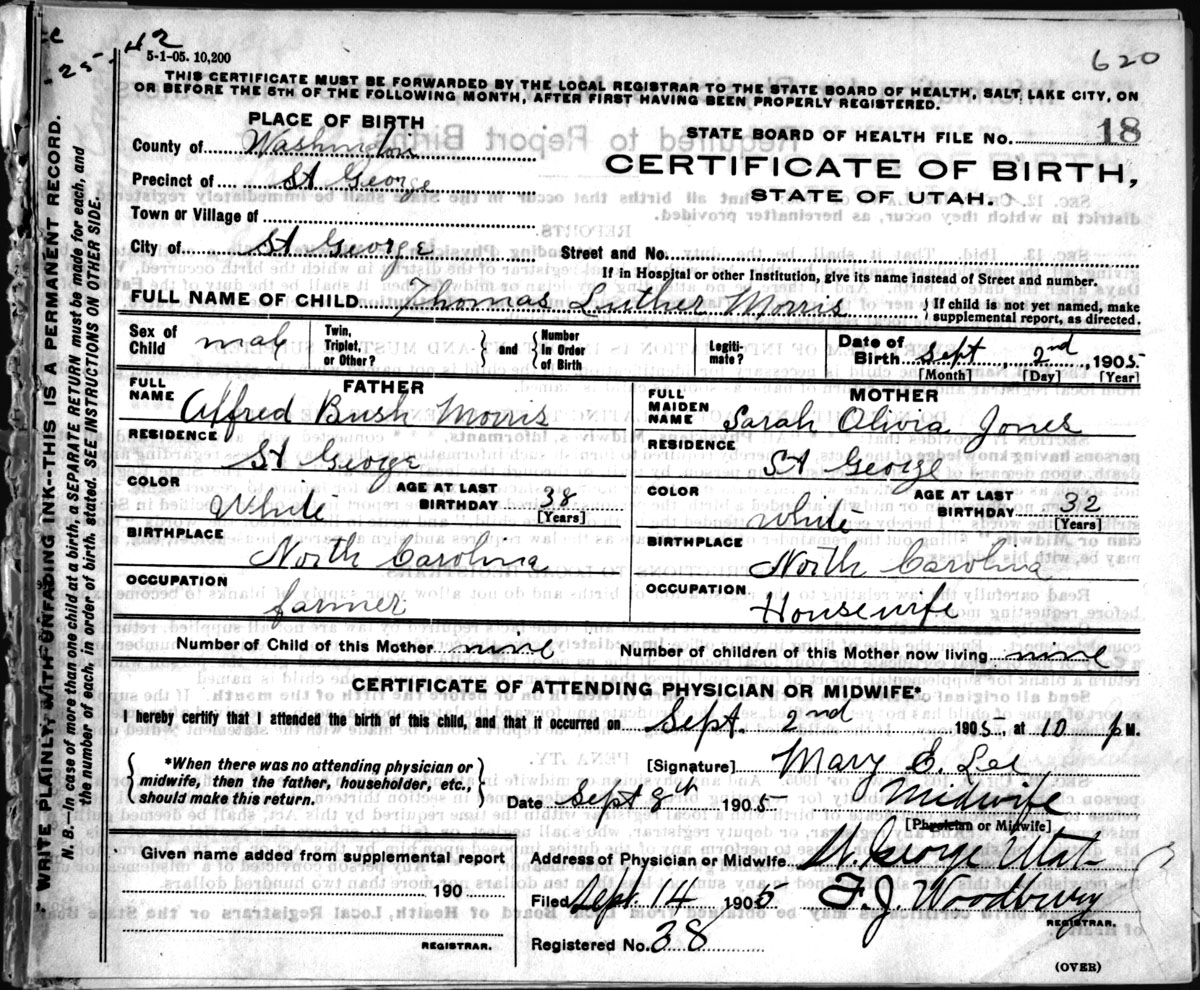 42
25
620
5-1-05. 10,200
THIS CERTIFICATE MUST BE FORWARDED BY THE LOCAL REGISTRAR TO THE STATE BOARD OF HEALTH, SALT LAKE CITY, ON
OR BEFORE THE 5TH OF THE FOLLOWING MONTH, AFTER FIRST HAVING BEEN PROPERLY REGISTERED.
PLACE OF BIRTH
County of Washington
Precinct of St George
Town or Village of
City of St George
STATE BOARD OF HEALTH FILE NO. 18
CERTIFICATE OF BIRTH,
STATE OF UTAH.
Street and No.
If in Hospital or other Institution, give its name instead of Street and number.
FULL NAME OF CHILD Thomas Luther Morris
If child is not yet named, make
supplemental report, as directed.
Sex of
Child male
Twin,
Triplet,
or Other?
and
Number
in Order
of Birth
Legiti-
mate?
Date of
Birth Sept 2nd 1905
[Month] [Day] [Year]
FATHER
FULL
NAME Alfred Bush Morris
RESIDENCE
St George
COLOR
White
AGE AT LAST
BIRTHDAY 38
[Years]
BIRTHPLACE
North Carolina
OCCUPATION
farmer
MOTHER
FULL
MAIDEN
NAME Sarah Olivia Jones
RESIDENCE
St George
COLOR
White
AGE AT LAST
BIRTHDAY 32
[Years]
BIRTHPLACE
North Carolina
OCCUPATION
Housewife
Number of Child of this Mother nine
Number of children of this Mother now living nine
CERTIFICATE OF ATTENDING PHYSICIAN OR MIDWIFE*
I hereby certify that I attended the birth of this child, and that it occurred on Sept. 2nd 1905, at 10 p M.
*When there was no attending physician or
midwife, then the father, householder, etc.,
should make this return.
[Signature] Mary E. Lee
Date Sept 8th 1905 Midwife
[Physician or Midwife]
Given name added from supplemental report
190
REGISTRAR.
Address of Physician or Midwife St. George Utah
Filed Sept. 14 1905 F. J. Woodbury
REGISTRAR.
Registered No. 38
(OVER)
WRITE PLAINLY, WITH UNFADING INK--THIS IS A PERMANENT RECORD.
N. B.—In case of more than one child at a birth, a SEPARATE RETURN must be made for each, and
the number of each, in order of birth, stated. SEE INSTRUCTIONS ON OTHER SIDE.